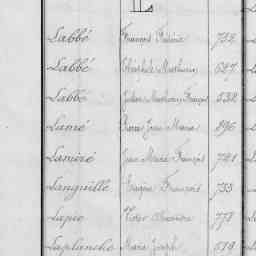 L
Labbé François 732
Labbé Mathurin 627
Labbé Julien Mathurin François 532
Lamé Pierre Jean Marie 896
Lamiré Jean Marie François 721
Languille Eugène François 733
Lapie Victor Alexandre 778
Laplanche Marie Joseph 519